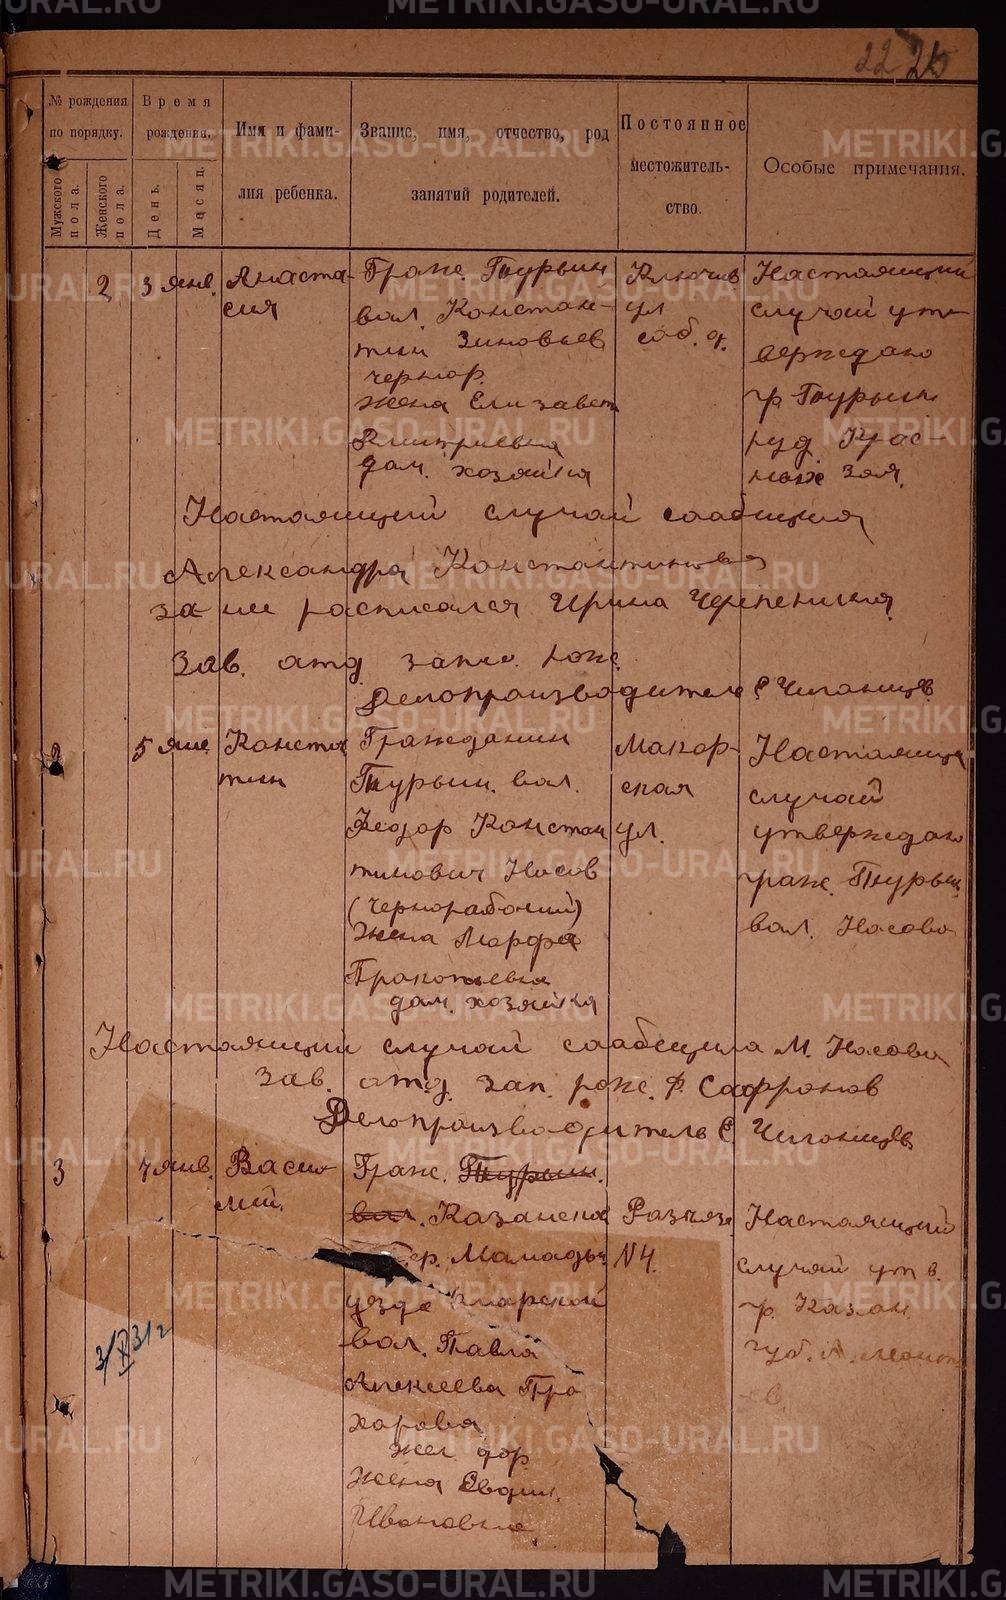 22 25
№ рождения по порядку.
Мужского пола.
Женского пола.
Время рождения.
День.
Месяц.
Имя и фами-
лия ребенка.
Звание, имя, отчество, род
занятий родителей.
Постоянное
местожитель-
ство.
Особые примечания.
2 3 янв. Анаста-
сия
Граж. Турьин
вал. Констан-
тин Зиновьев
чернор.
жена Елизавет
Дмитриевна
дом. хозяйка
Ключев
ул
соб. д.
Настоящий
случай ут-
верждаю
гр. Турьин
Настоящий случай сообщила
Александра Константинова
за нее расписался Ирина
Зав. отд. запис. рож.
Делопроизводитель
2 5 янв Констан
тин
Гражданин
Турьин. вол.
Федор Констан
тинович Носов
(Чернорабочий)
Жена Марфа
Прокопьевна
дом. хозяйка
Макор-
ская
ул.
Настоящий
случай
утверждаю
граж. Турьин.
вол. Носова
Настоящий случай сообщила М. Носова
Зав. отд. зап. рож. Ф. Сафронов
Делопроизводитель
3 7 янв. Васи-
лий.
Граж. Турьин.
вол. Казанской
Мамадыш
уезда
вол. Павла
Алексеева Про
харова
Жена
Ивановна
Разъезд
N4.
Настоящий
случай утв.
гр. Казан.
губ.
3/X 31 г
METRIKI.GASO-URAL.RU